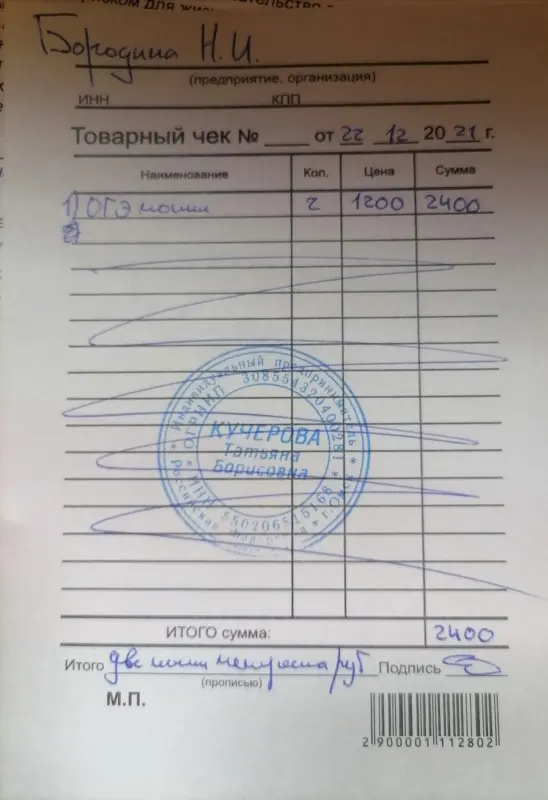 Бородина Н.И.
(предприятие, организация)
ИНН КПП
Товарный чек № от 22 12 2021 г.
Наименование Кол. Цена Сумма
1) ОГЭ 2 1200 2400
Индивидуальный предприниматель
ОГРНИП 30855432040028
КУЧЕРОВА
Татьяна
Борисовна
ИНН 550206515168
Российская г. Омск
ИТОГО сумма: 2400
Итого две четыреста руб Подпись
(прописью)
М.П.
2 900001 112802